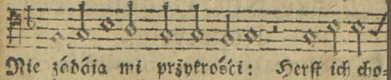 Nie zádáią mi pržykrośći: Herſt ich cho⸗